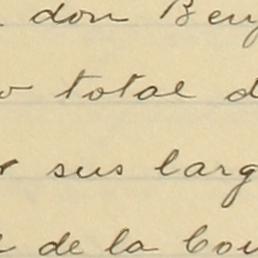 don Benj
total d
sus larg
de la Cou